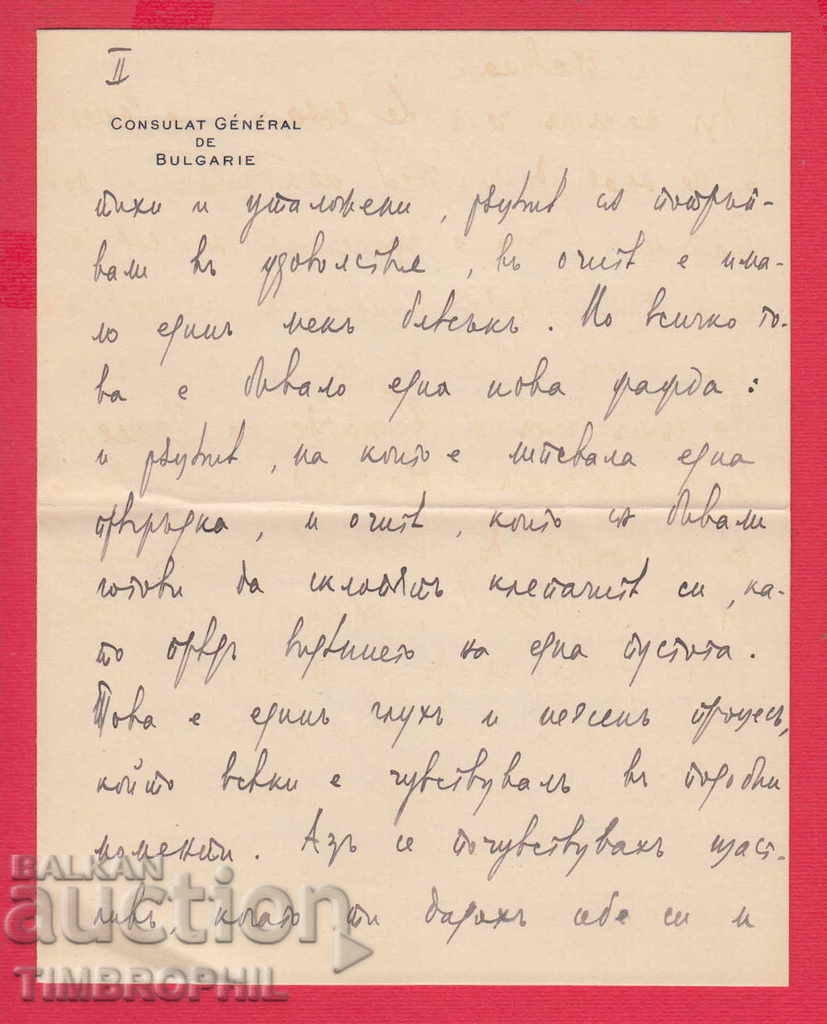 II
CONSULAT GÉNÉRAL
DE
BULGARIE
тихи и уталожени, рѫцѣтѣ сѫ потръп-
вали въ удоволствие, въ очитѣ е има-
ло единъ мекъ блѣсъкъ. Но всичко то-
ва е бивало една нова фарда:
и рѫцѣтѣ, на които е липсвала една
прегръдка, и очитѣ, които сѫ бивали
готови да склопятъ клепачитѣ си, ка-
то предъ видението на една пустота.
Това е единъ глухъ и неясенъ процесъ,
който всѣки е чувствувалъ въ подобни
моменти. Азъ се почувствувахъ щаст-
ливъ, когато ти дадохъ себе си и
BALKAN
auction
TIMBROPHIL